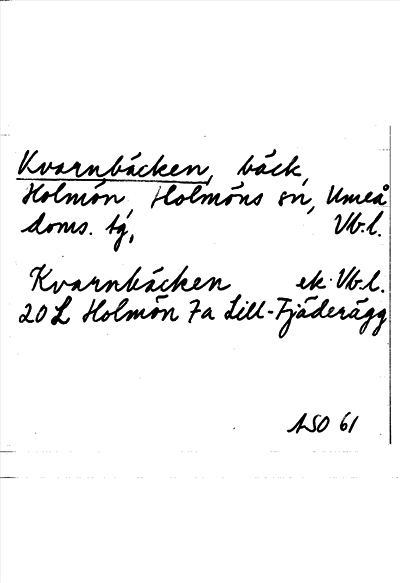 Kvarnbäcken, bäck,
Holmön, Holmöns sn, Umeå
doms. tg, Vb.l.
Kvarnbäcken ek Vb.l.
20 L Holmön 7a Lill-Fjäderägg
ASO 61